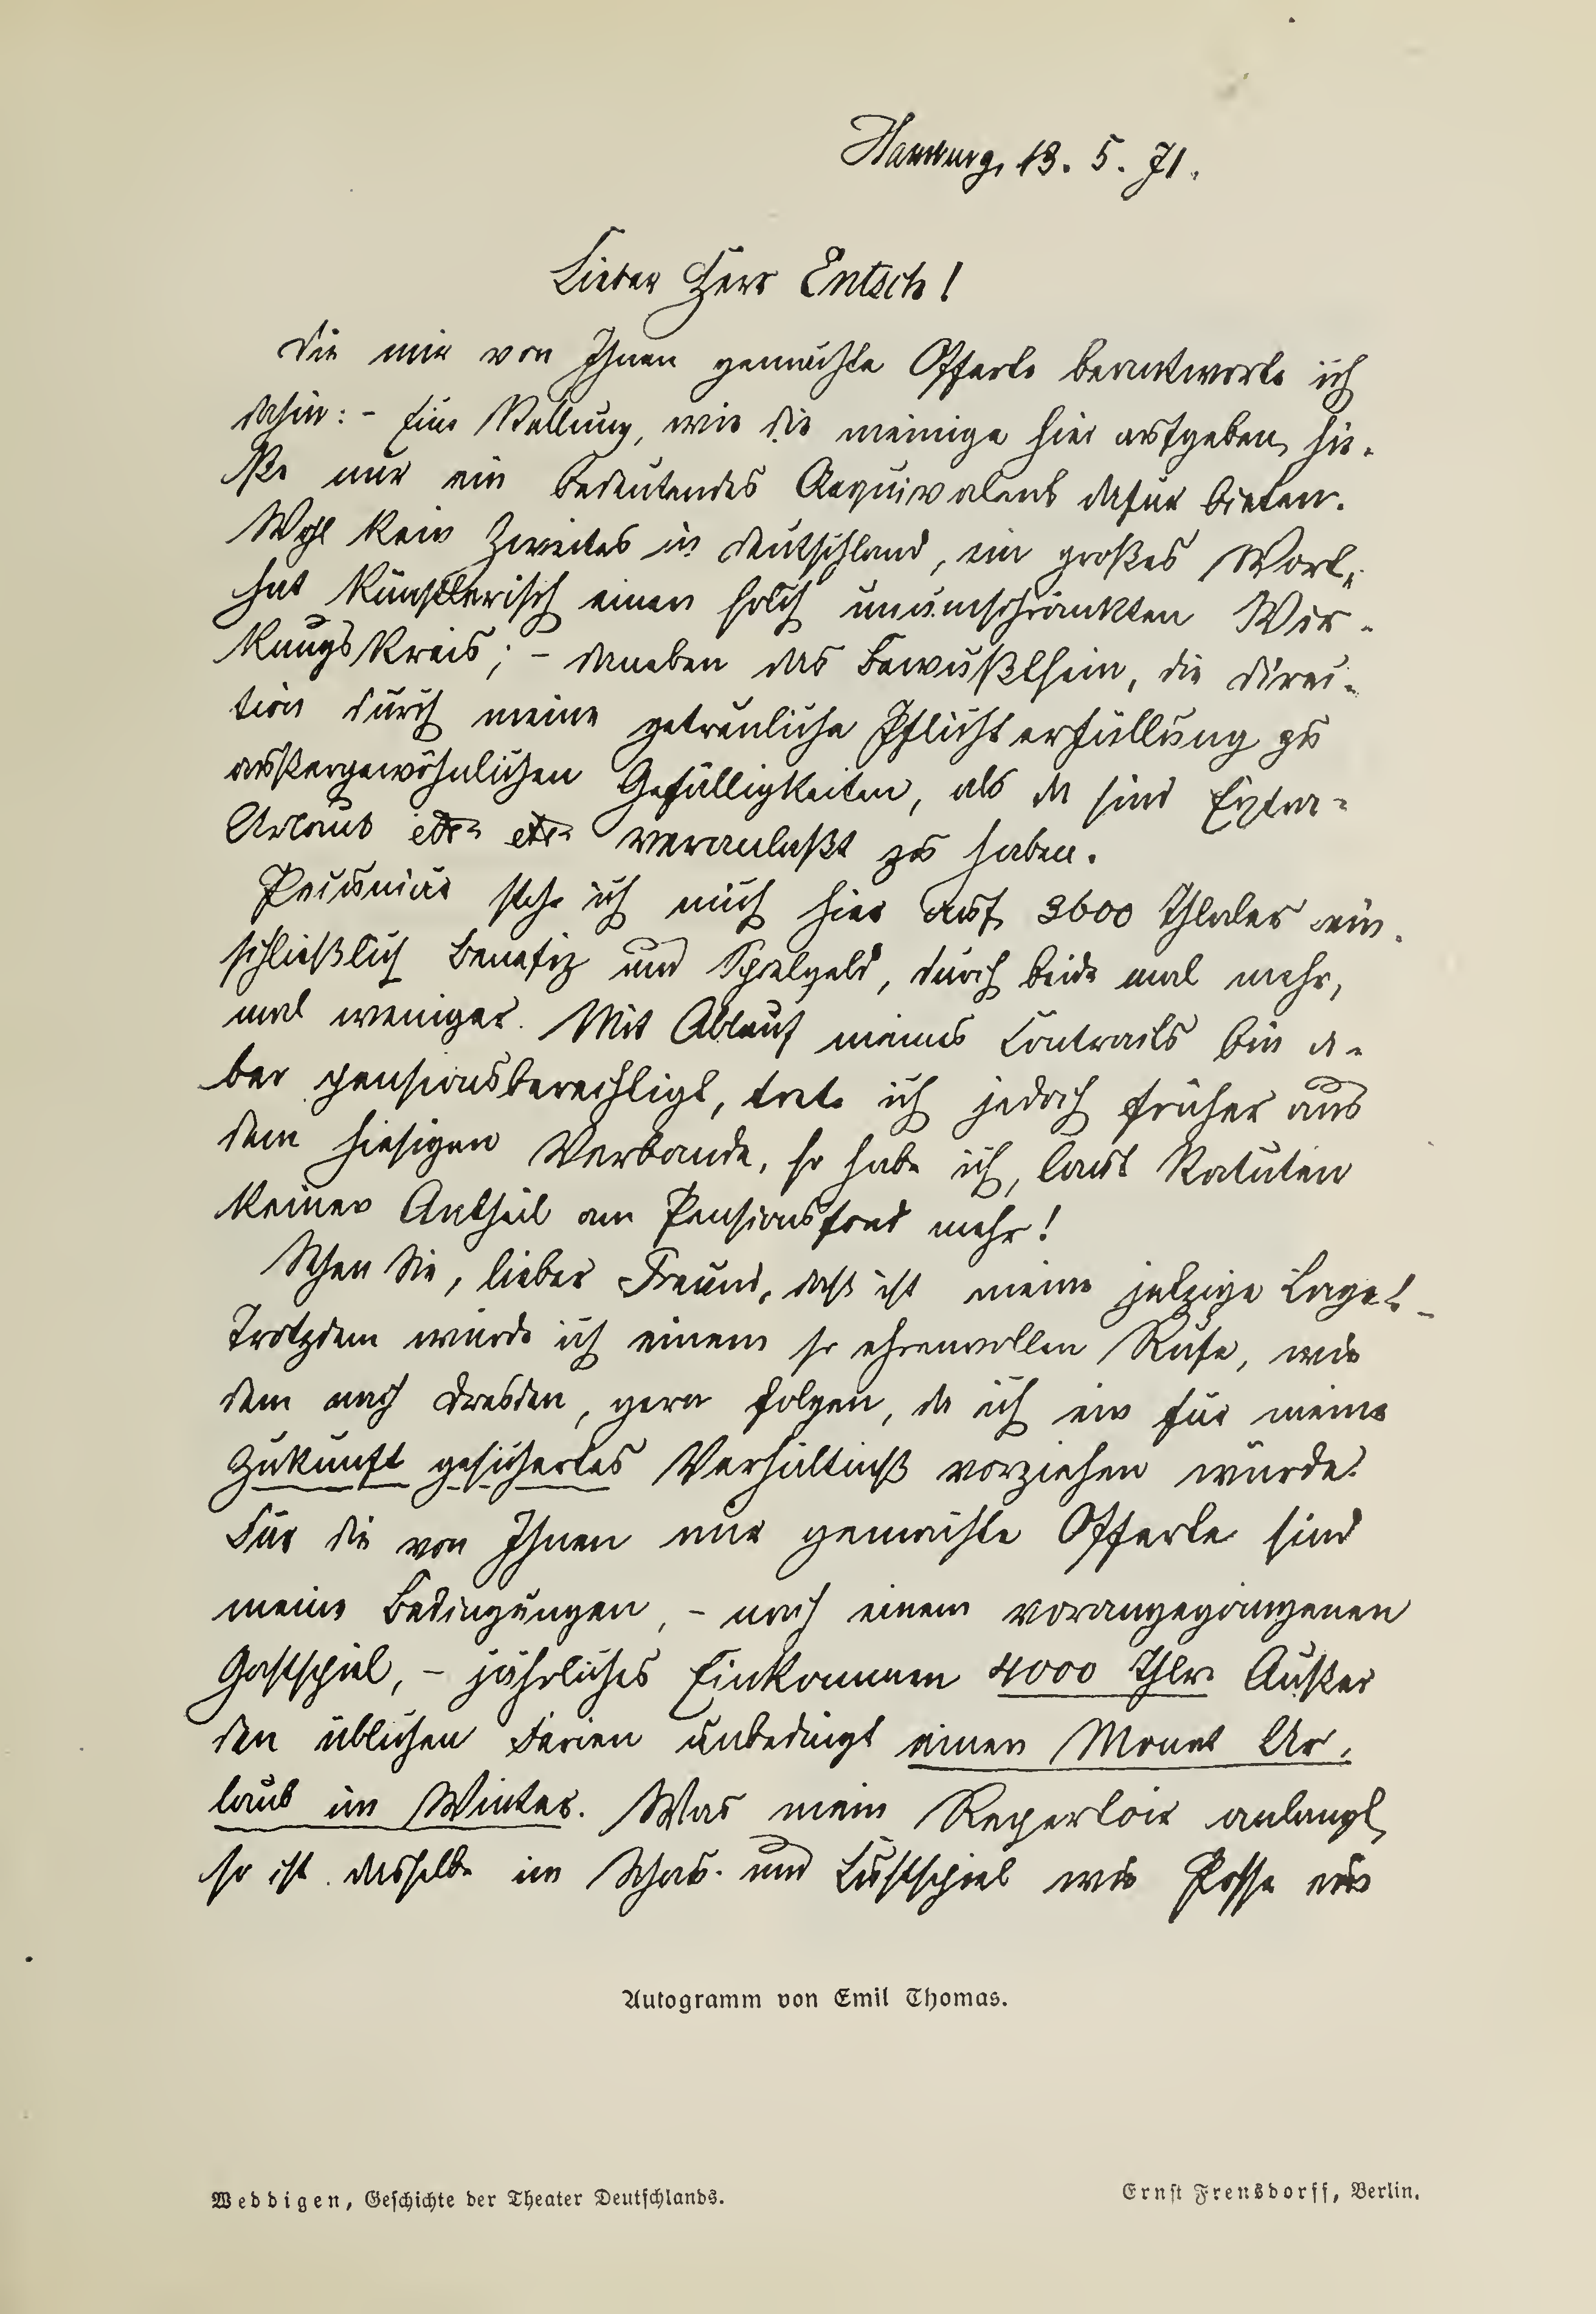 Hamburg, 13. 5. 71.
Lieber Herr Entsch!
Die mir von Ihnen gemachte Offerte beantworte ich
dahin: - Eine Stellung, wie die meinige hier aufgeben, hie-
ße nur ein bedeutendes Aequivalent dafür bieten.
Wohl kein Zweites in Deutschland, ein großes Wort,
hat künstlerisch einen solch unumschränkten Wir-
kungskreis; - daneben das Bewußtsein, die Direc-
tion durch meine getreuliche Pflichterfüllung zu
außergewöhnlichen Gefälligkeiten, als da sind Extra-
Urlaub etc etc veranlaßt zu haben.
Pecuniär stehe ich mich hier auf 3600 Thlaler ein-
schließlich Benefiz und Spielgeld, durch beide mal mehr,
mal weniger. Mit Ablauf meines Contracts bin a-
ber pensionsberechtigt, trete ich jedoch früher aus
dem hiesigen Verbande, so habe ich, laut Statuten
keinen Antheil am Pensionsfond mehr!
Sehen Sie, lieber Freund, daß ist meine jetzige Lage! -
Trotzdem würde ich einem so ehrenvollen Rufe, wie
dem nach Dresden, gern folgen, da ich ein für meine
Zukunft gesichertes Verhältniß vorziehen würde.
Für die von Ihnen mir gemachte Offerte sind
meine Bedingungen, - nach einem vorangegangenen
Gastspiel, - jährliches Einkommen 4000 Thlr. Außer
den üblichen Ferien unbedingt einen Monat Ur-
laub im Winter. Was mein Repertoir anlangt,
so ist dasselbe im Schau- und Lustspiel wie Posse ein
Autogramm von Emil Thomas.
Weddigen, Geschichte der Theater Deutschlands.
Ernst Frensdorff, Berlin.